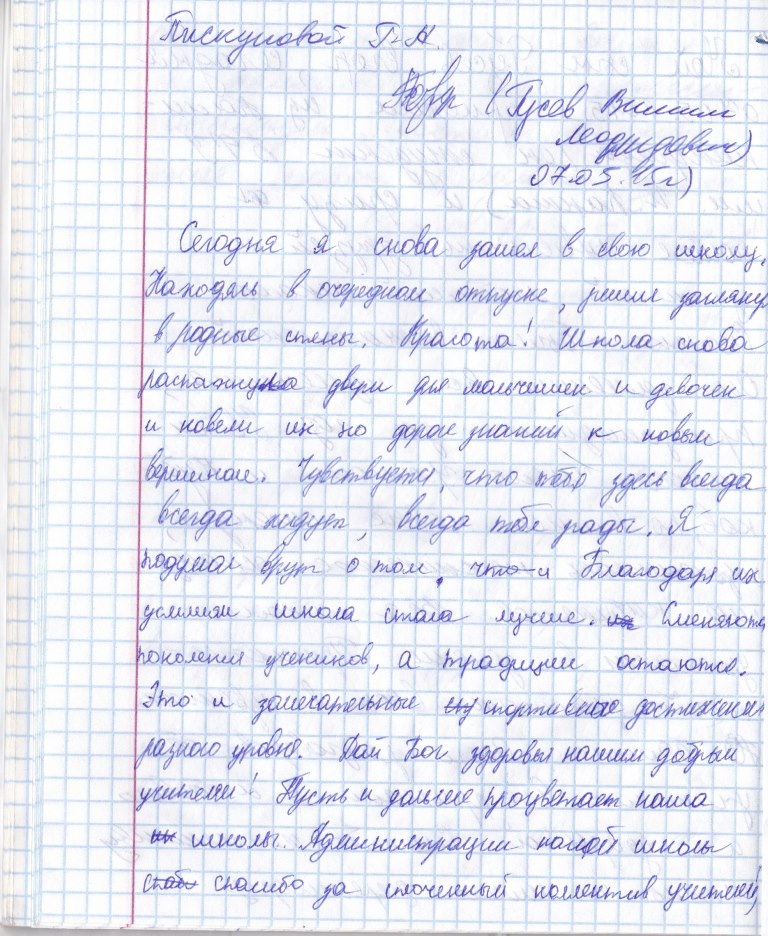 Пискуновой Г.Н.
(Гусев Вилким
Леонидович)
07.05.15г)
Сегодня я снова зашел в свою школу.
Находясь в очередном отпуске, решил заглянуть
в родные стены. Красота! Школа снова
распахнула двери для мальчишек и девочек
и повели их по дороге знаний к новым
вершинам. Чувствуется, что тебя здесь всегда
всегда ждут, всегда тебе рады. Я
подумал вдруг о том, что и Благодаря их
усилиям школа стала лучше. Сменяются
поколения учеников, а традиции остаются.
Это и замечательные спортивные достижения
разного уровня. Дай Бог здоровья нашим добрым
учителям! Пусть и дальше процветает наша
школы. Администрации нашей школы
спасибо за сплоченный коллектив учителей,